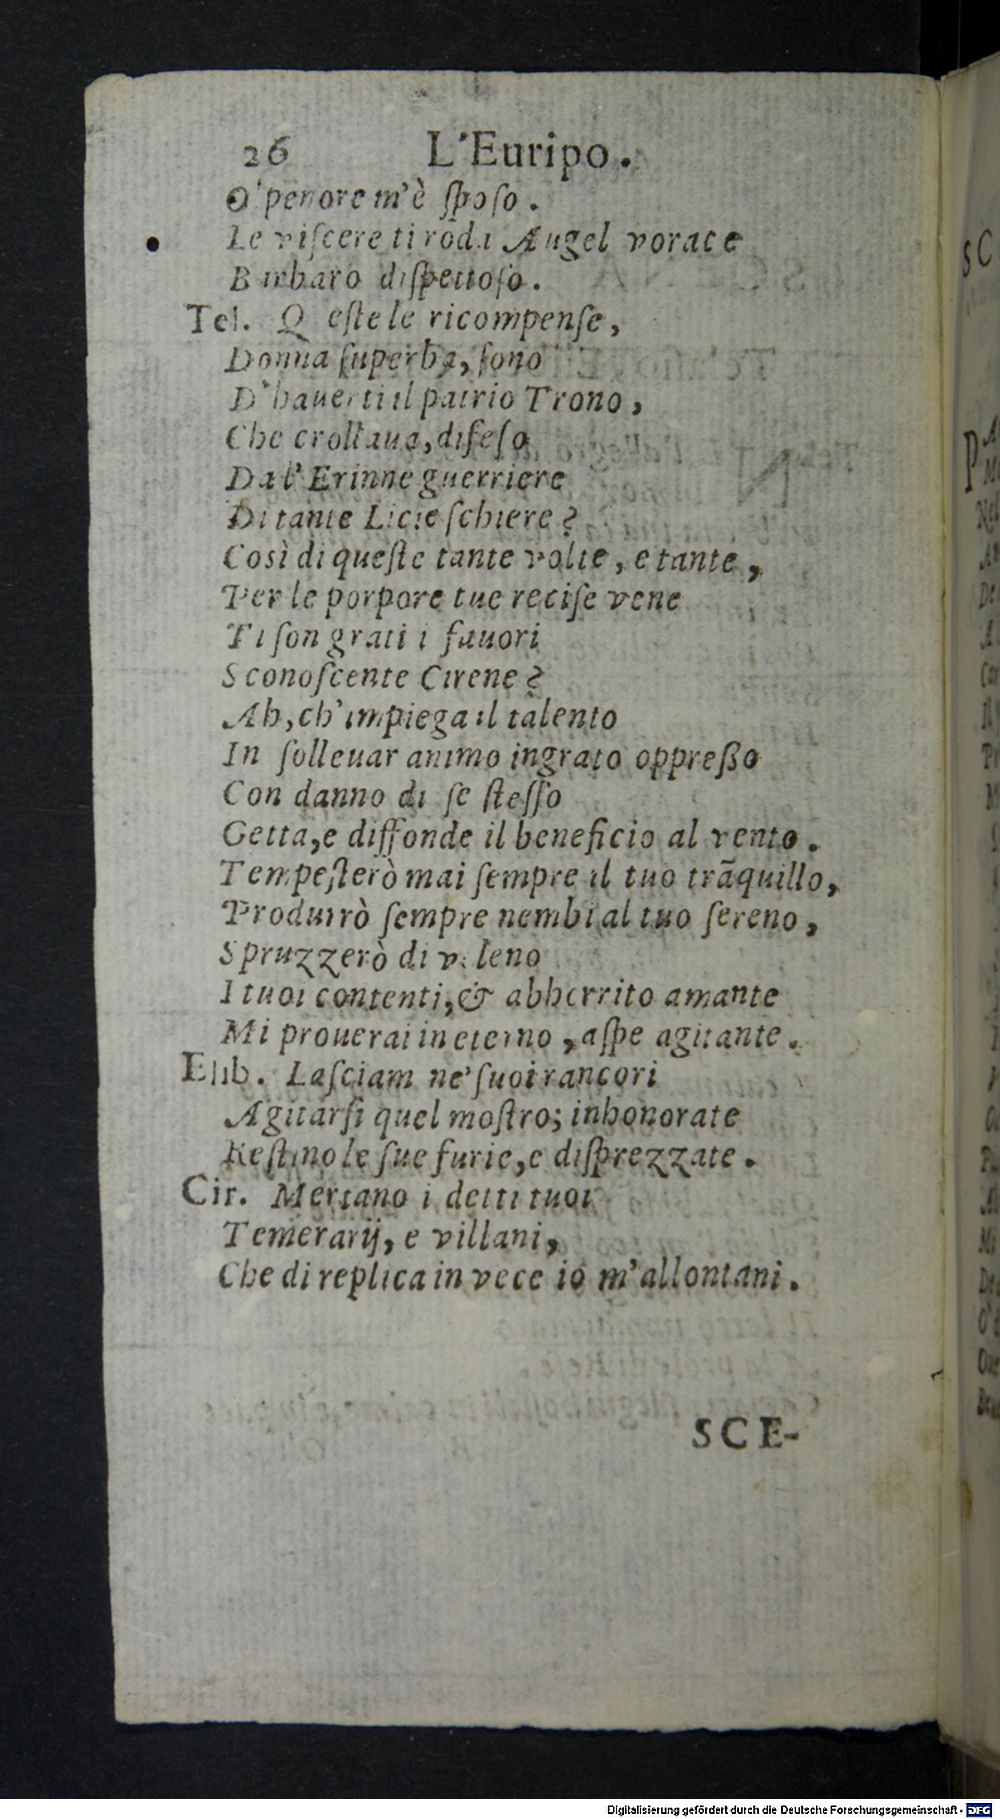 26 L'Euripo.
O' penore m'è ſpoſo.
Le viſcere ti roda Augel vorace
Barbaro diſpettoſo.
Tel. Q eſte le ricompenſe,
Donna ſuperba, ſono
D'hauerti il patrio Trono,
Che crollaua, difeſo
Dal'Erinne guerriere
Di tante Licie ſchiere?
Così di queſte tante volte, e tante,
Per le porpore tue reciſe vene
Ti ſon grati i fauori
Sconoſcente Cirene?
Ah, ch'impiega il talento
In ſolleuar animo ingrato oppreßo
Con danno di ſe ſteſſo
Getta, e diffonde il beneficio al vento.
Tempeſterò mai ſempre il tuo trãquillo,
Produrrò ſempre nembi al tuo ſereno,
Spruzzerò di veleno
I tuoi contenti, & abherrito amante
Mi prouerai in eterno, aſpe agitante.
Eub. Laſciam ne' ſuoi rancori
Agitarſi quel moſtro; inhonorate
Reſtino le ſue furie, e diſprezzate.
Cir. Mertano i detti tuoi
Temerarij, e villani,
Che di replica in vece io m'allontani.
SCE-
Digitalisierung gefördert durch die Deutsche Forschungsgemeinschaft - DFG